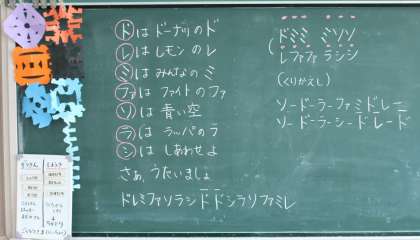 ドは ドーナツの ド
レは レモンの レ
ミは みんなの ミ
ファは ファイトの ファ
ソは 青い空
ラは ラッパの ラ
シは しあわせよ
さぁ、うたいましょ
ドレミファソラシドドシラソファミレ
ドミミ ミソソ
レファファ ラシシ
(くりかえし)
ソードーラーファミドレー
ソードーラーシードレード